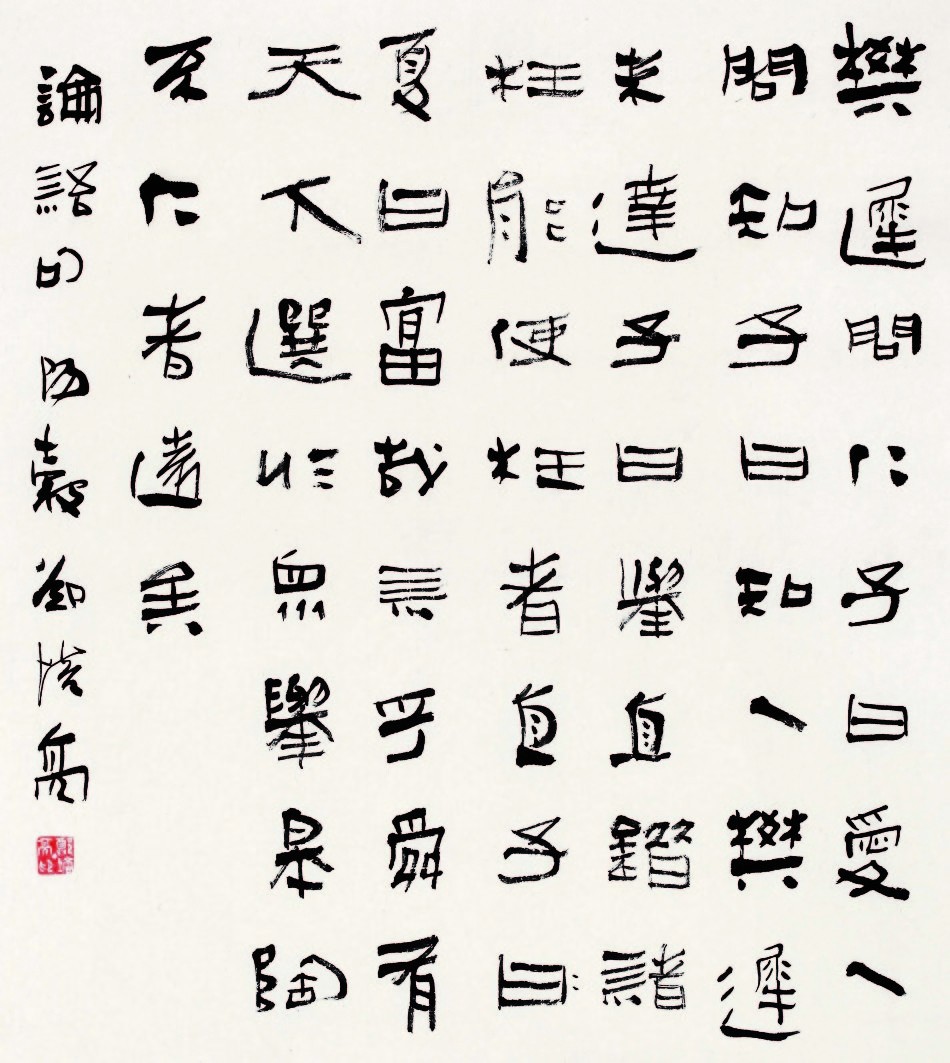 樊遲問仁子曰愛人
問知子曰知人樊遲
未達子曰舉直錯諸
枉能使枉者直子曰
夏曰富哉言乎舜有
天下選於眾舉皋陶
不仁者遠矣
論語句